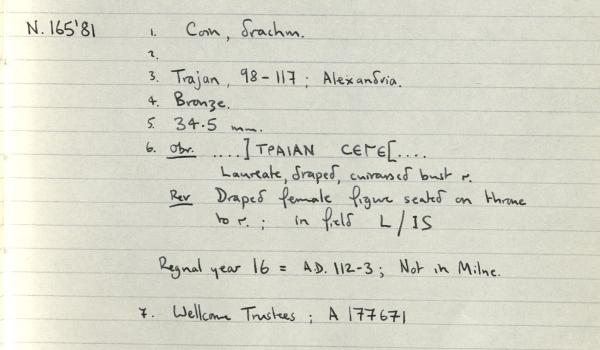 N.165'81 1. Coin, drachm.
2.
3. Trajan, 98-117; Alexandria.
4. Bronze.
5. 34.5 mm.
6. Obv. ....] ΤΡΑΙΑΝ CΕΓΕ[....
Laureate, draped, cuirassed bust r.
Rev Draped female figure seated on throne
to r.; in field L/IS
Regnal year 16 = A.D. 112-3; Not in Milne.
7. Wellcome Trustees; A 177671